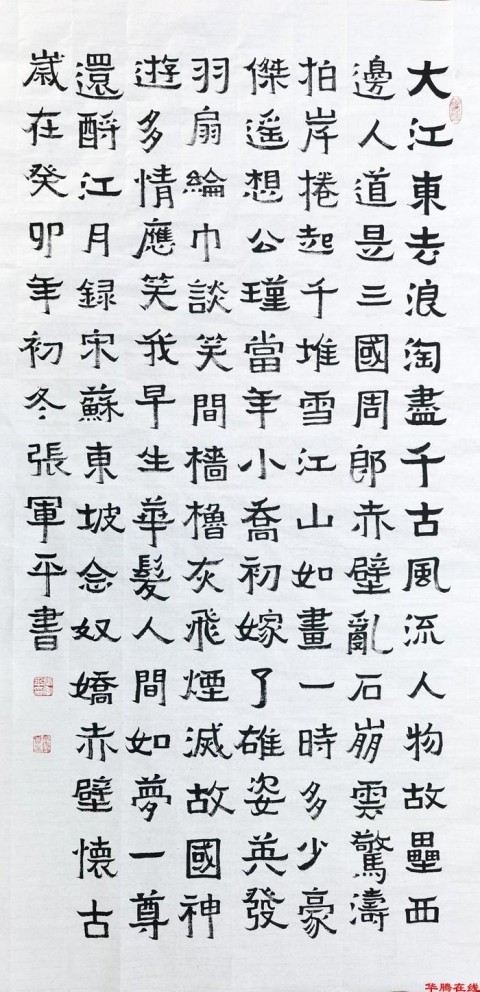 大江東去浪淘盡千古風流人物故壘西
邊人道是三國周郎赤壁亂石崩雲驚濤
拍岸捲起千堆雪江山如畫一時多少豪
傑遥想公瑾當年小喬初嫁了雄姿英發
羽扇綸巾談笑間檣櫓灰飛煙滅故國神
遊多情應笑我早生華髮人間如夢一尊
還酹江月録宋蘇東坡念奴嬌赤壁懷古
歲在癸卯年初冬張軍平書
华腾在线